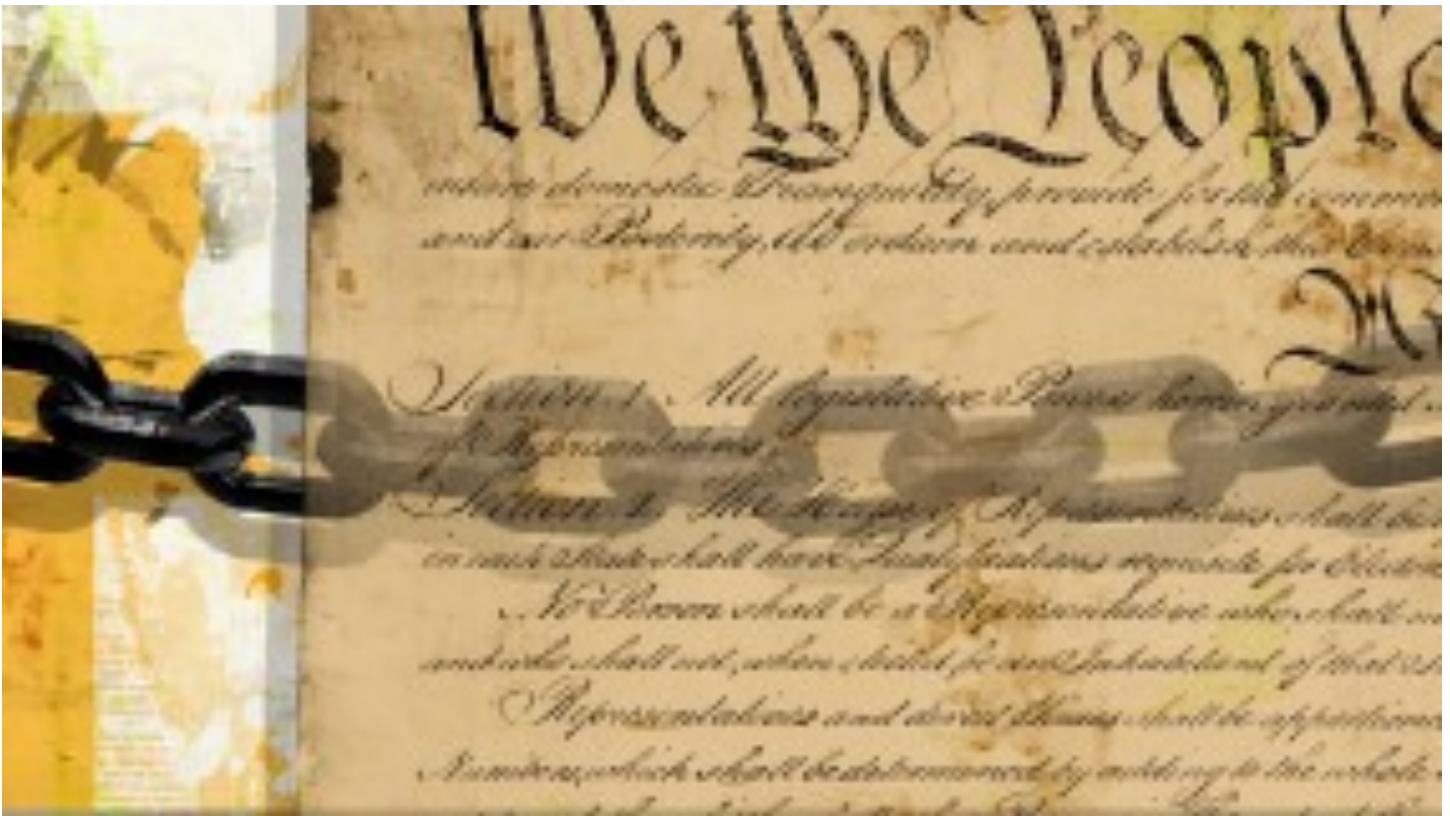 We the People
insure domestic Tranquility, provide for the common
and our Posterity, do ordain and establish this
Section. 1. All legislative Powers herein granted
of Representatives.
Section. 2. The House of Representatives shall be
in each State shall have Qualifications requisite for
No Person shall be a Representative who shall
and who shall not, when elected, be an Inhabitant of that
Representatives and direct Taxes shall be apportioned
Numbers, which shall be determined by adding to the whole